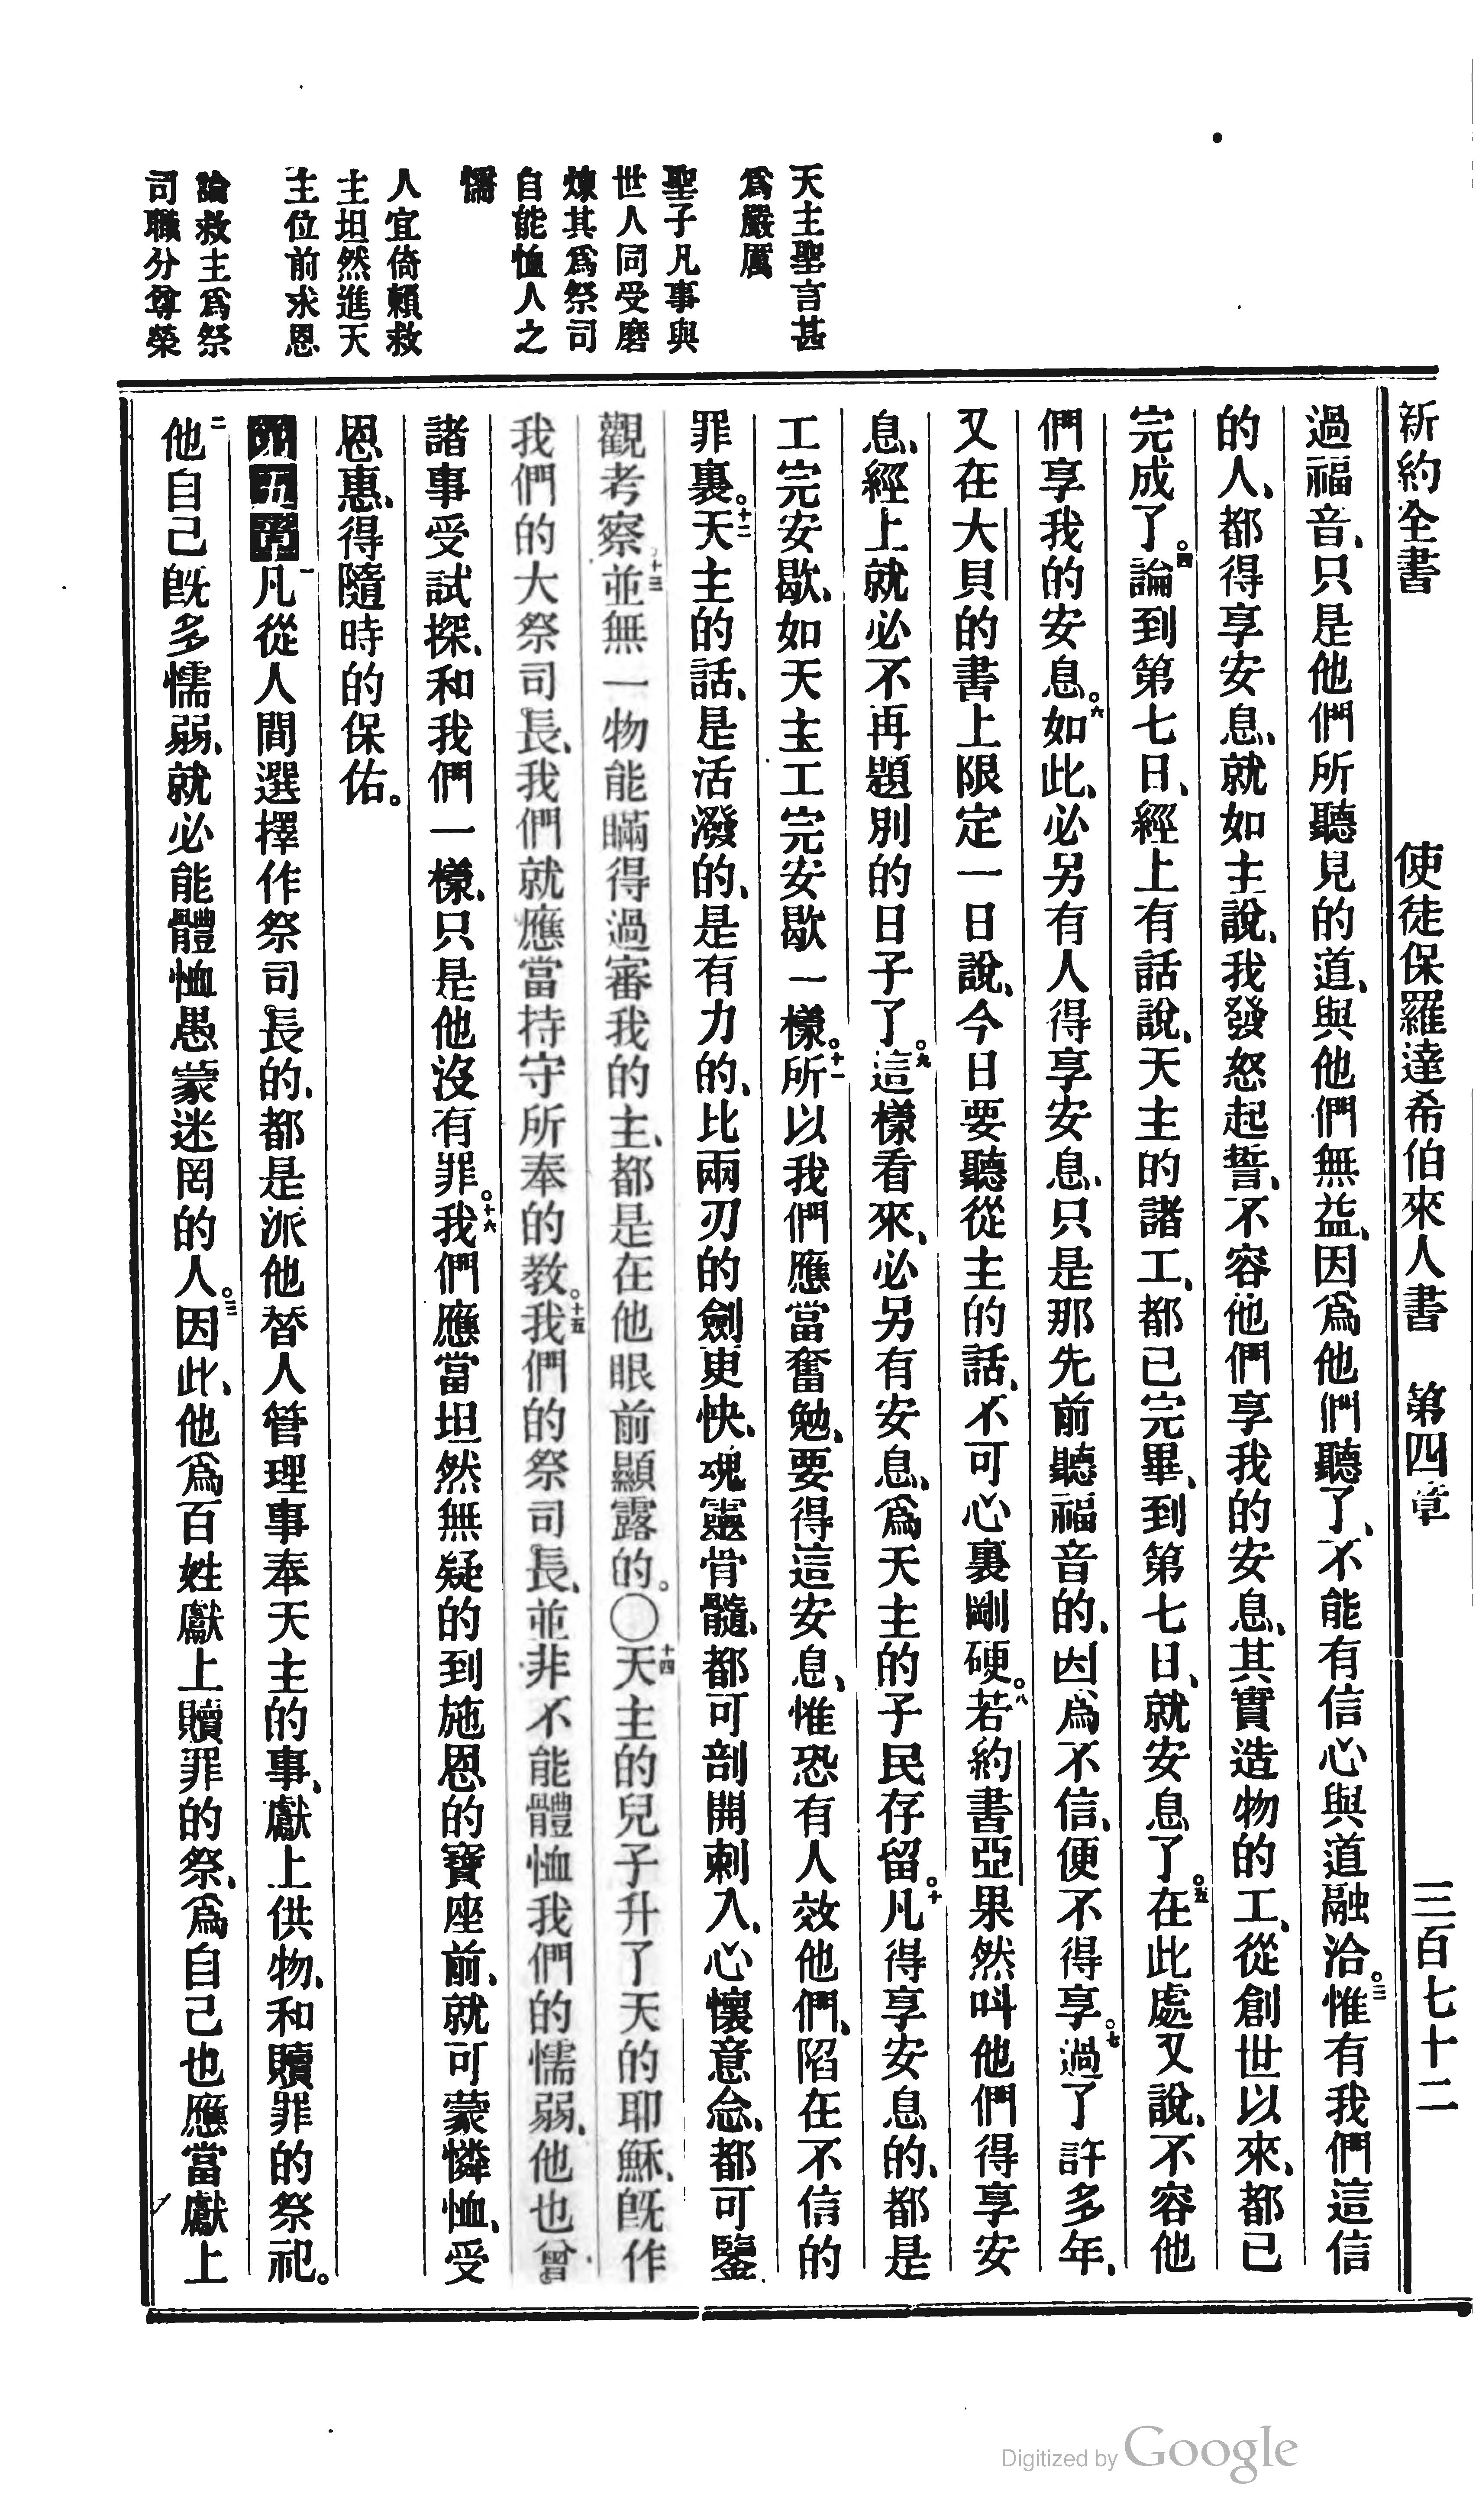 新約全書 使徒保羅達希伯來人書 第四章 三百七十二
天主聖言甚
爲嚴厲
聖子凡事與
世人同受磨
煉其爲祭司
自能恤人之
懦
人宜倚賴救
主坦然進天
主位前求恩
論救主爲祭
司職分尊榮
過福音、只是他們所聽見的道、與他們無益、因爲他們聽了、不能有信心與道融洽。三惟有我們這信
的人、都得享安息、就如主說、我發怒起誓、不容他們享我的安息、其實造物的工、從創世以來、都已
完成了。四論到第七日、經上有話說、天主的諸工、都已完畢、到第七日、就安息了。五在此處又說、不容他
們享我的安息。六如此、必另有人得享安息、只是那先前聽福音的、因爲不信、便不得享。七過了許多年、
又在大貝的書上限定一日說、今日要聽從主的話、不可心裏剛硬。八若約書亞果然呌他們得享安
息、經上就必不再題別的日子了。九這樣看來、必另有安息、爲天主的子民存留。十凡得享安息的、都是
工完安歇、如天主工完安歇一樣。十一所以我們應當奮勉、要得這安息、惟恐有人效他們、陷在不信的
罪裏。十二天主的話、是活潑的、是有力的、比兩刃的劍更快、魂靈骨髓、都可剖開刺入、心懷意念、都可鑒
觀考察、十三並無一物能瞞得過審我的主、都是在他眼前顯露的。〇十四天主的兒子升了天的耶穌、既作
我們的大祭司長、我們就應當持守所奉的教。十五我們的祭司長、並非不能體恤我們的懦弱、他也曾
諸事受試探、和我們一樣、只是他沒有罪。十六我們應當坦然無疑的到施恩的寶座前、就可蒙憐恤、受
恩惠、得隨時的保佑。
第五章一凡從人間選擇作祭司長的、都是派他替人管理事奉天主的事、獻上供物、和贖罪的祭祀。
二他自己既多懦弱、就必能體恤愚蒙迷罔的人。三因此、他爲百姓獻上贖罪的祭、爲自己也應當獻上
Digitized by Google